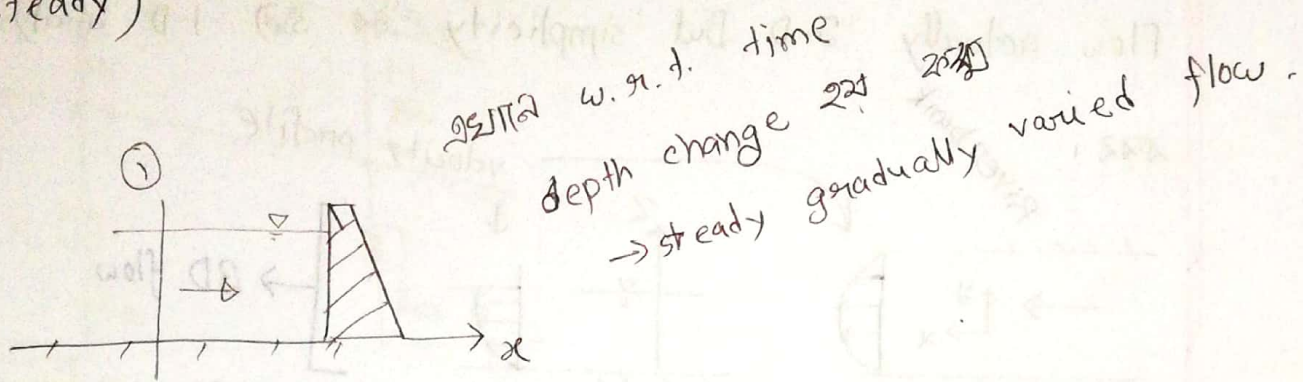 teady)
এখানে w.r.t. time
depth change হয়
→ steady gradually varied flow.
①
x